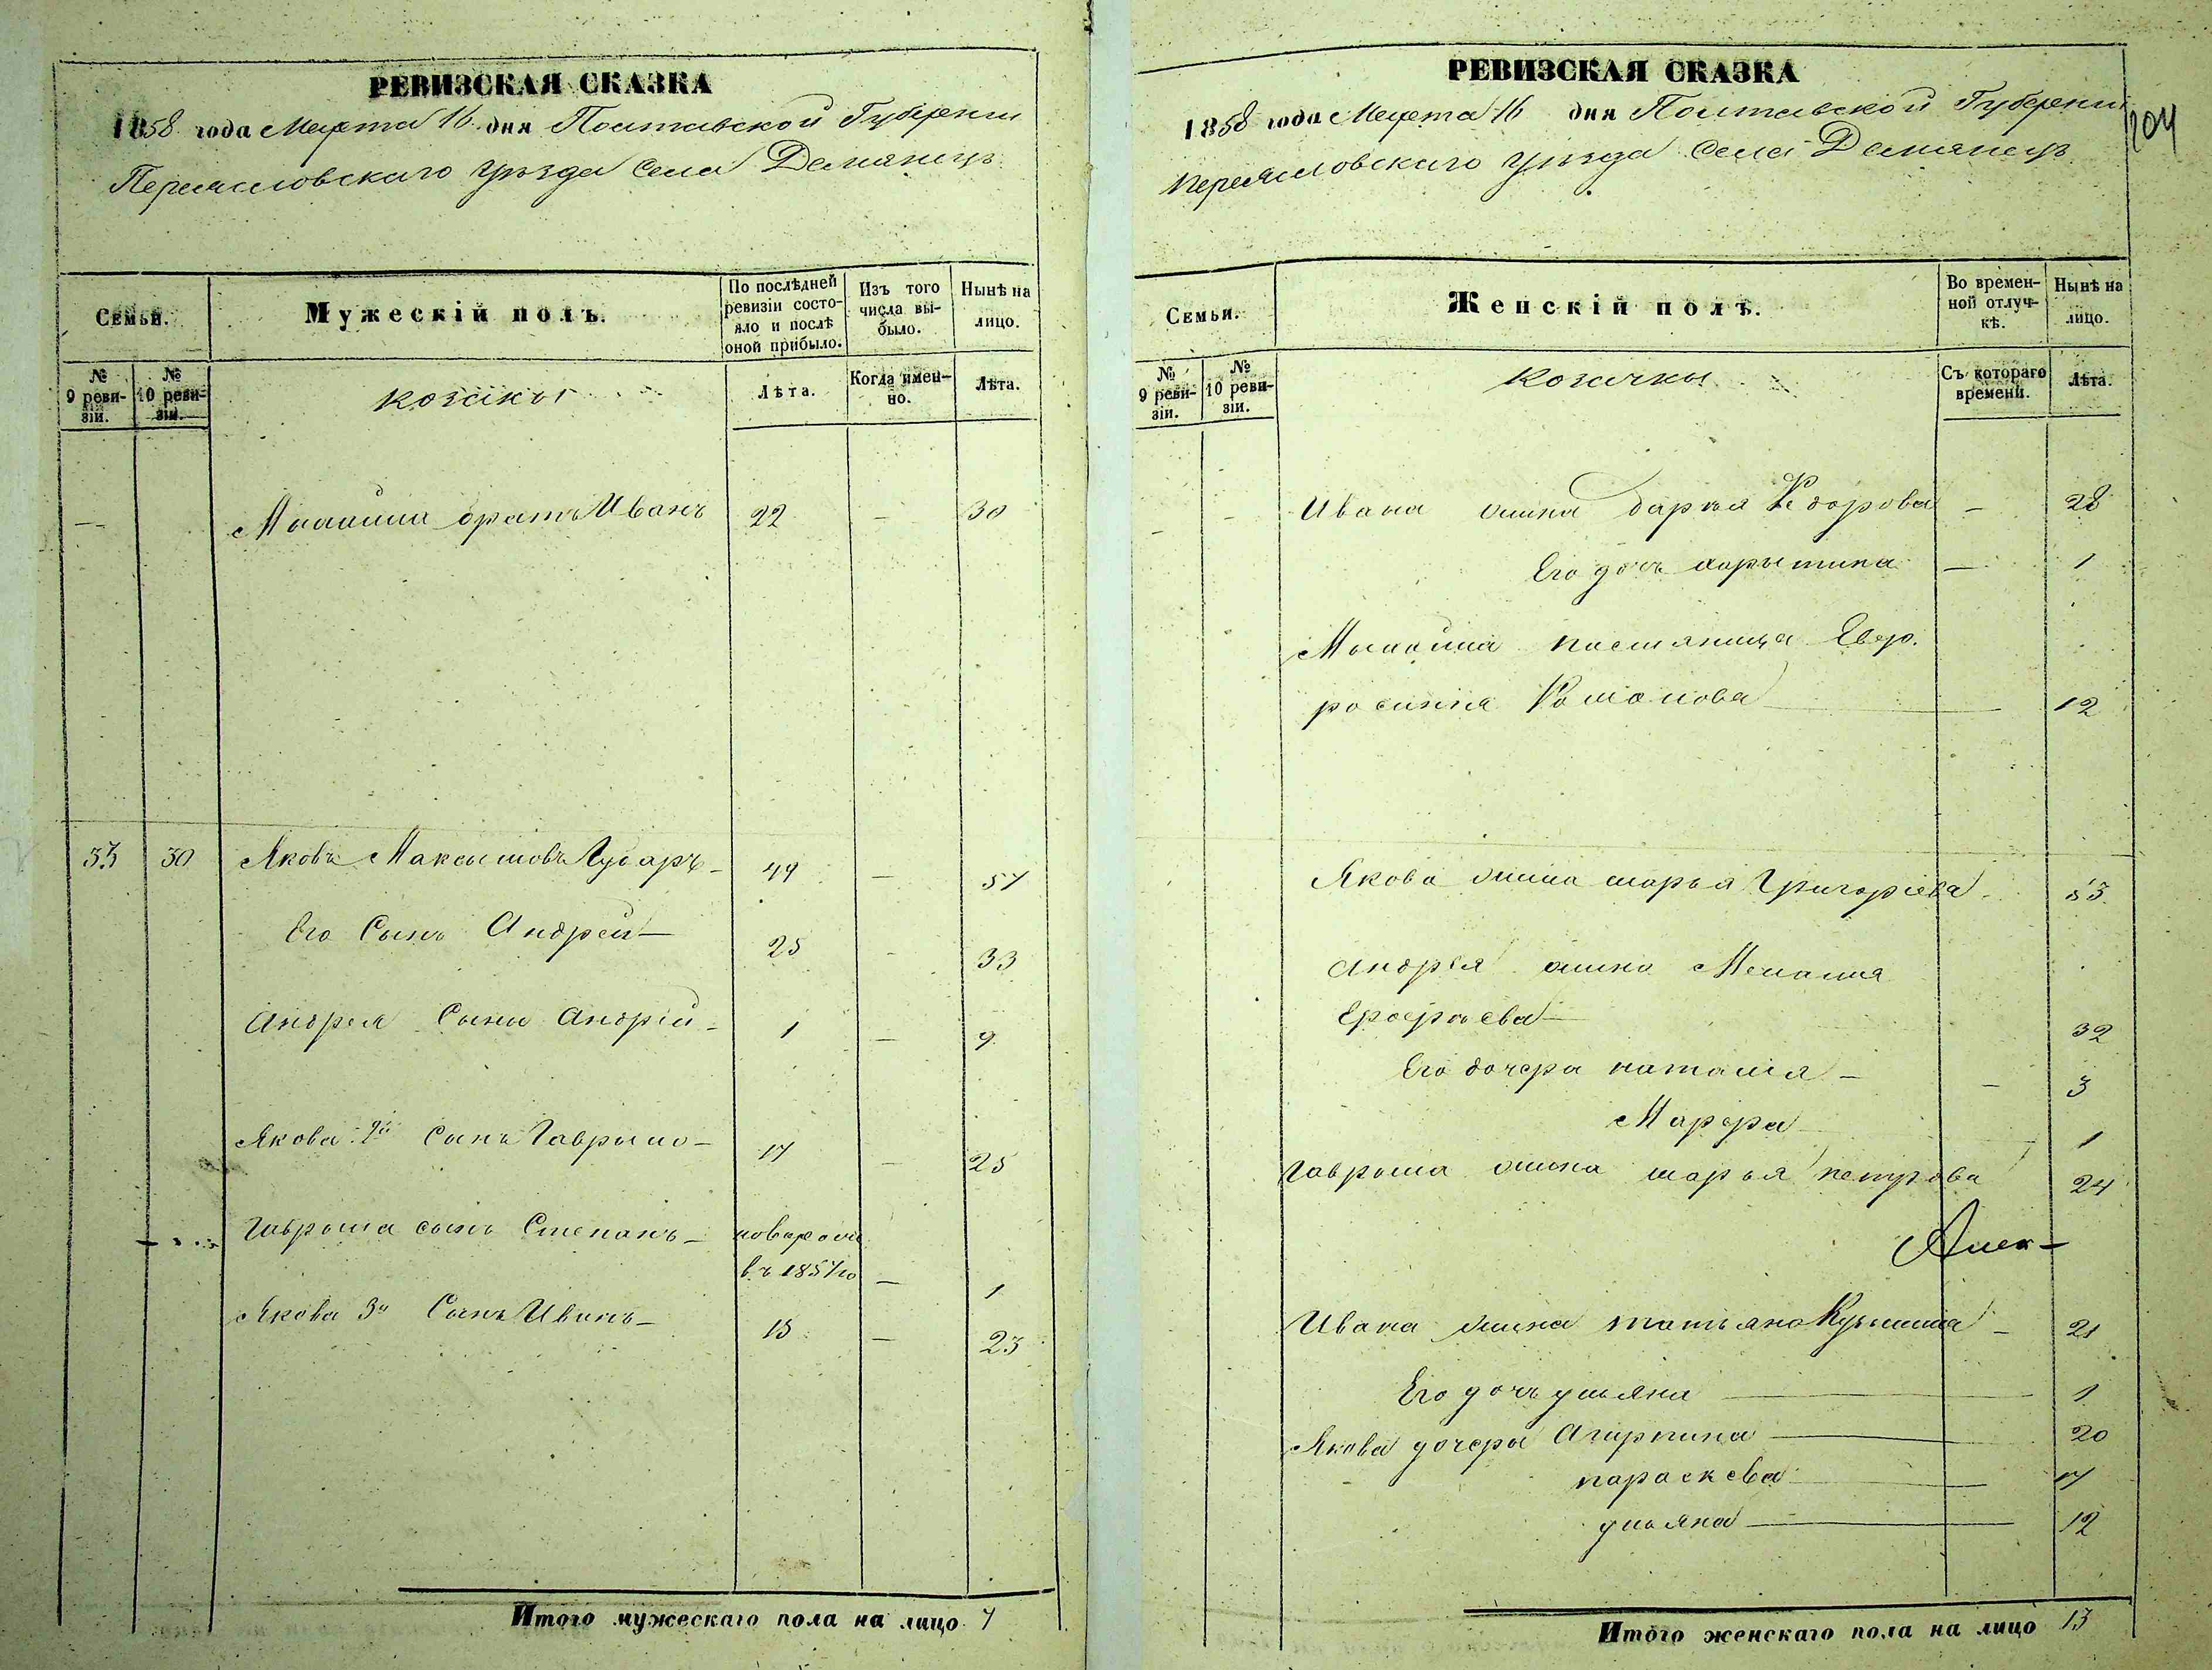 РЕВИЗСКАЯ СКАЗКА
1858 года Марта 16 дня Полтавской Губернии
Переясловскаго уѣзда Села Демянецъ
Семьи.
Мужескій полъ.
По послѣдней ревизіи состояло и послѣ оной прибыло.
Изъ того числа выбыло.
Нынѣ на лицо.
№ 9 ревизіи.
№ 10 ревизіи.
козаки
Лѣта.
Когда именно.
Лѣта.
— братъ Иванъ 22 — 30
33 30 Яковъ Максимовъ Губарь — 49 — 57
Его Сынъ Андрей — 25 - 33
Андрея Сынъ Андрій — 1 — 9
Якова 2й Сынъ Гаврыло — 17 — 25
Гаврыла сынъ Степанъ — новорож
въ 1857го — 1
Якова 3й Сынъ Иванъ — 15 — 23
Итого мужескаго пола на лицо 7
РЕВИЗСКАЯ СКАЗКА
204
1858 года Марта 16 дня Полтавской Губерніи
Переясловскаго уѣзда Села Демянецъ
Семьи.
Женскій полъ.
Во временной отлучкѣ.
Нынѣ на лицо.
№ 9 ревизіи.
№ 10 ревизіи.
Козачки
Съ котораго времени.
Лѣта.
— - Ивана жина дарья Ѳедорова — 28
Его дочь харытина — 1
Евфросиния Романова — 12
Якова жина марья Григоріева - 53
Андрея жина Меланія
Ерофѣева — 32
Его дочера наталия — - 3
Марфа 1
Гаврыла жина марья петрова 24
Ивана жина татьяна Кузьмина — 21
Его дочь ульяна — 1
Якова дочеры Агирпина — 20
параскева — 17
ульяна — 12
Итого женскаго пола на лицо 13